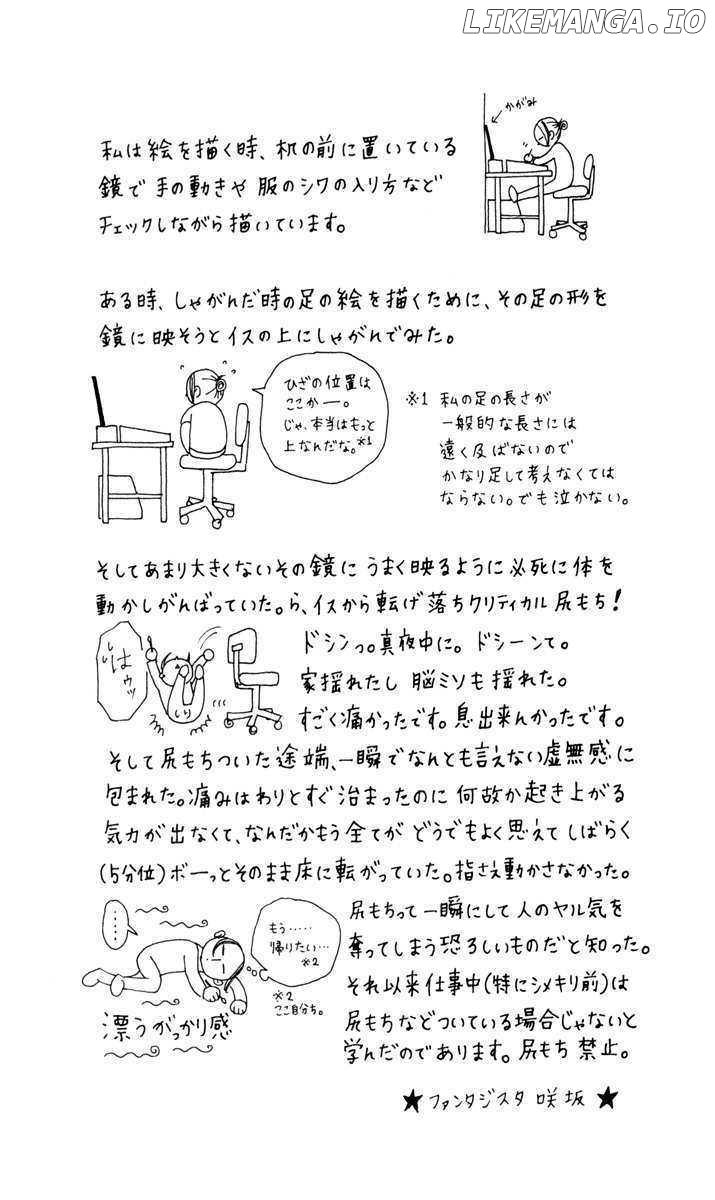 LIKEMANGA.IO
かがみ
私は絵を描く時、机の前に置いている
鏡で手の動きや服のシワの入り方など
チェックしながら描いています。
ある時、しゃがんだ時の足の絵を描くために、その足の形を
鏡に映そうとイスの上にしゃがんでみた。
ひざの位置は
ここかー。
じゃ、本当はもっと
上なんだな。※1
※1 私の足の長さが
一般的な長さには
遠く及ばないので
かなり足して考えなくては
ならない。でも泣かない。
そしてあまり大きくないその鏡にうまく映るように必死に体を
動かしがんばっていた。ら、イスから転げ落ちクリティカル尻もち!
はうッ
しり
ドシンっ。真夜中に。ドシーンて。
家揺れたし脳ミソも揺れた。
すごく痛かったです。息出来んかったです。
そして尻もちついた途端、一瞬でなんとも言えない虚無感に
包まれた。痛みはわりとすぐ治まったのに何故か起き上がる
気力が出なくて、なんだかもう全てがどうでもよく思えてしばらく
(5分位)ボーっとそのまま床に転がっていた。指さえ動かさなかった。
‥‥
もう‥‥‥
帰りたい‥‥
※2
※2
ここ自分ち。
漂うがっかり感
尻もちって一瞬にして人のヤル気を
奪ってしまう恐ろしいものだと知った。
それ以来仕事中(特にシメキリ前)は
尻もちなどついている場合じゃないと
学んだのであります。尻もち禁止。
★ファンタジスタ咲坂★